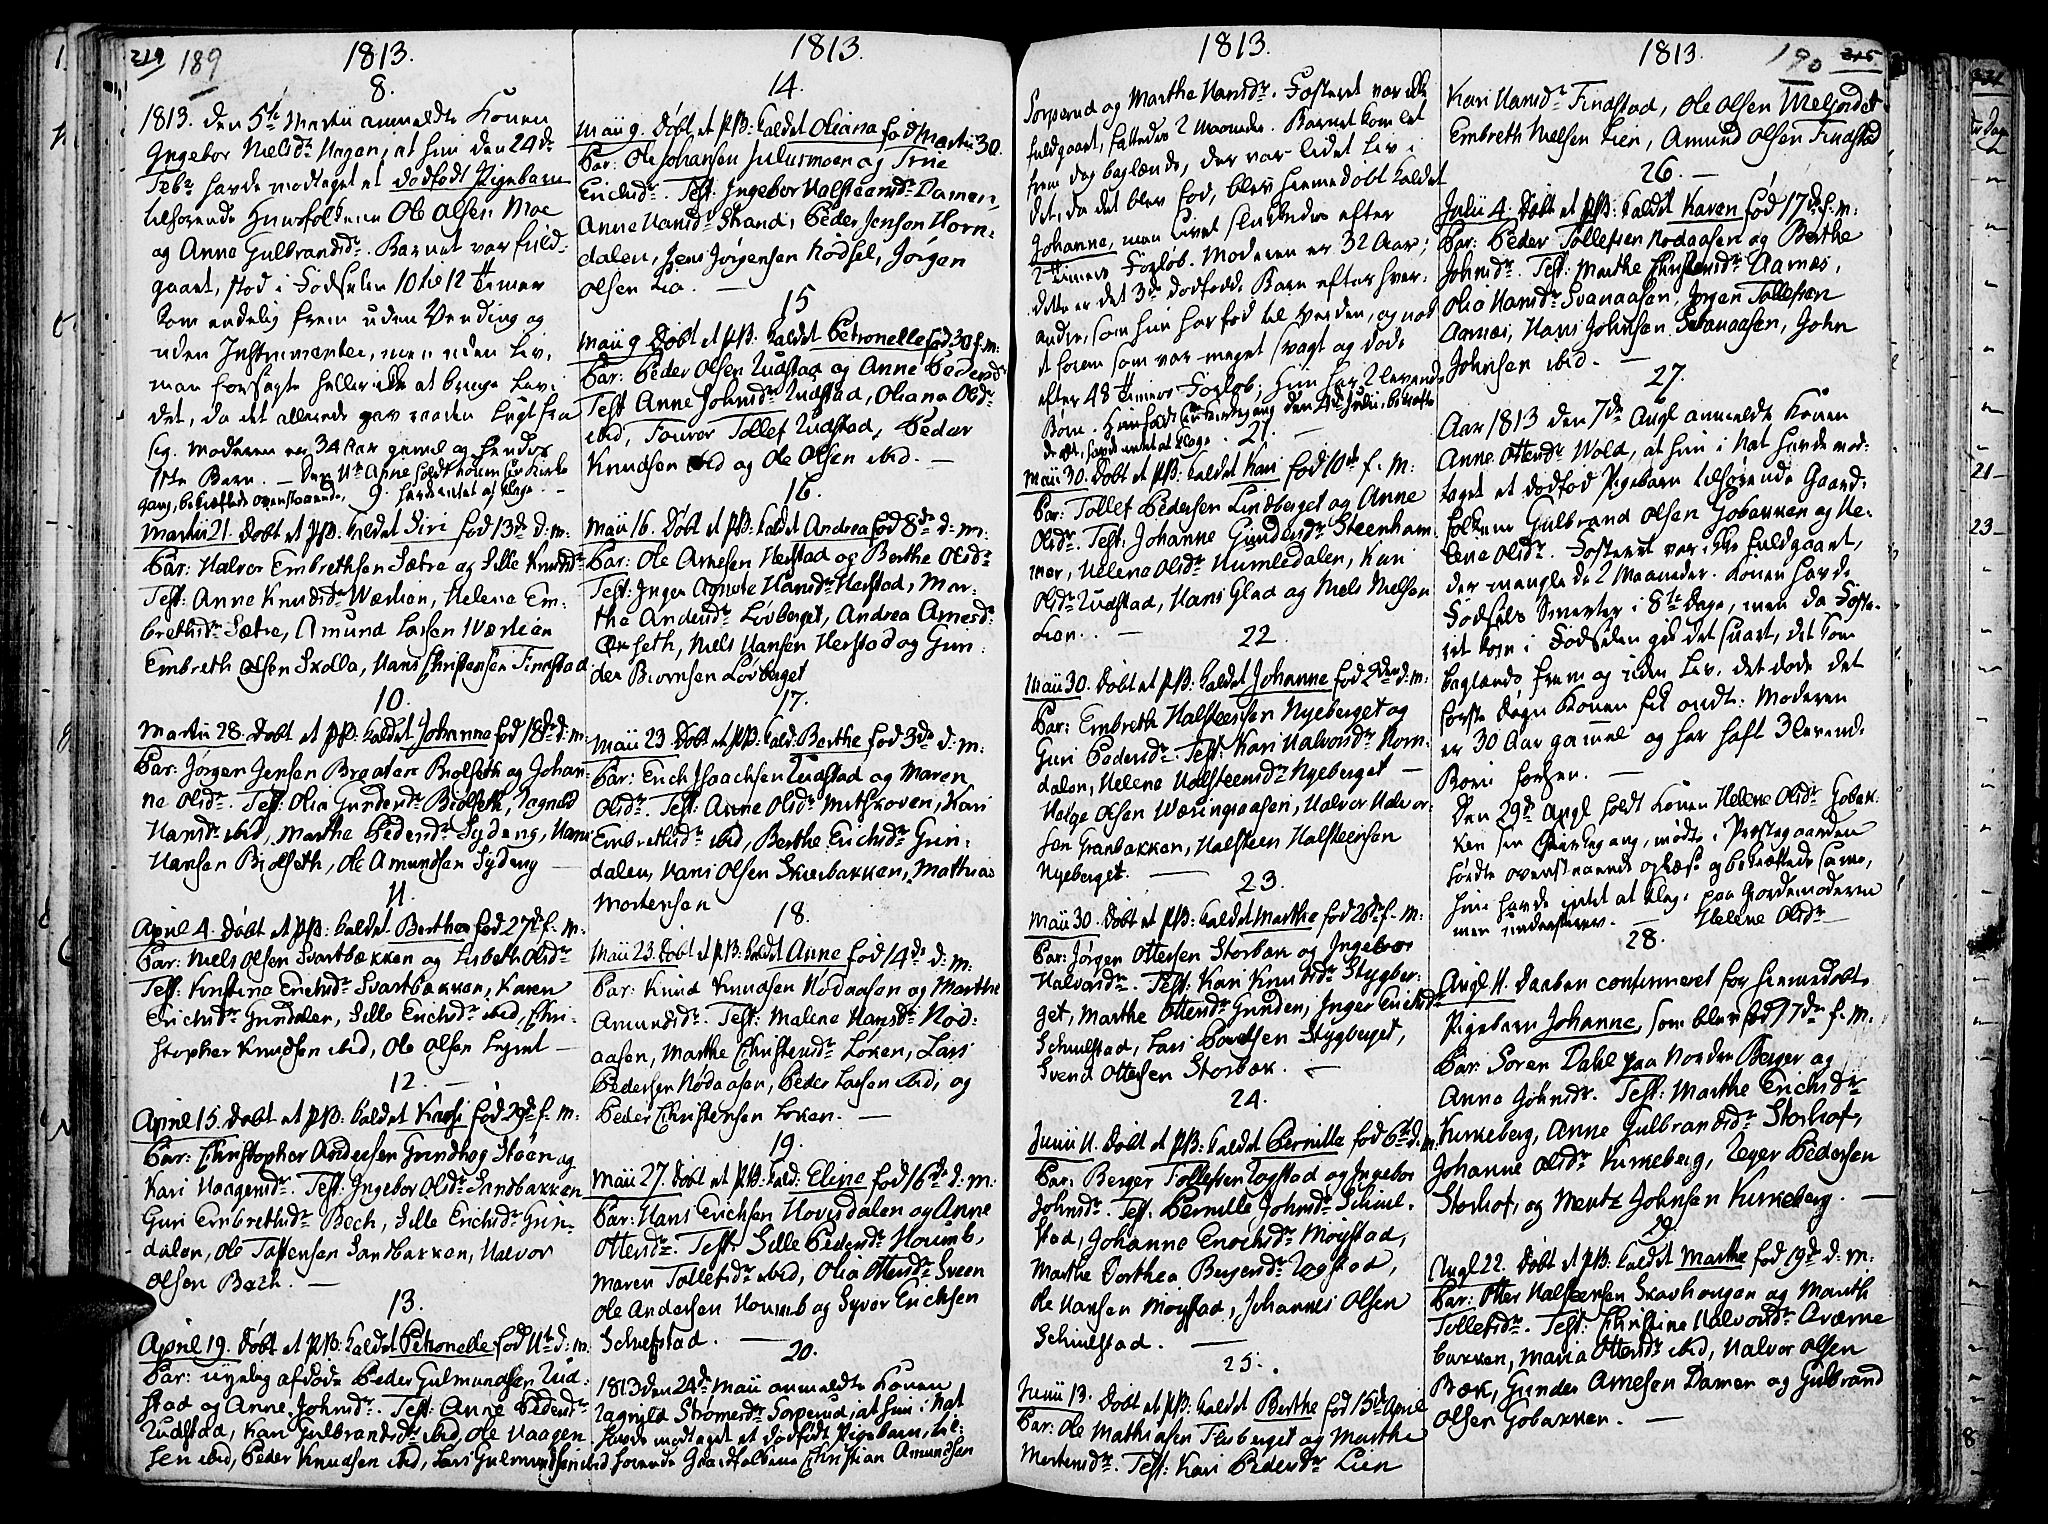 219 189 1813.
8.
1813. den 5te Martii anmeldte Konen
Ingebor Nielsdr Hagen, at hun den 24de
Febr havde modtaget et dødfødt Pigebarn
tilhørende Huusfolkene Ole Olsen Moe
og Anne Gulbrandsdr. Barnet var fuld-
gaaet, stod i Fødselen 10 à 12 Timer
kom endelig frem uden Vending og
uden Instrumenter, men uden Liv,
man forsøgte heller ikke at bringe Liv i
det, da det allerede gav raaden Lugt fra
sig. Moderen er 34 Aar gamel og hendes
1ste Barn. — Den 11te Anne holdt sin Kirke
gang, bekræftede ovenstaaende, havde intet at klage. —
9.
Martii 21. Døbt et PB: kaldet Siri fød 13de d: M:
Par: Halvor Embrethsen Sætre og Sille Knudsdr
Test: Anne Knudsdr Værlien, Helene Em-
brethsdr Sætre, Amund Larsen Værlien
Embreth Olsen Skolla, Hans Christensen Finnstad
10.
Martii 28. Døbt et PB: kaldet Johanne fød 18de d: M:
Par: Jørgen Jensen Braaten Biolseth og Johan-
ne Olsdr. Test: Olia Gundersdr Biolseth, Ragnild
Hansdr ibid, Marthe Pedersdr Sydeng, Hans
Hansen Biolseth, Ole Amundsen Sydeng —
11.
April 4. Døbt et PB: kaldet Berthe fød 27de f. M:
Par: Niels Olsen Svartbækken og Lisbeth Olsdr
Test: Kristina Erichsdr Svartbækken, Karen
Erichsdr Grundalen, Sille Erichsdr ibid, Chri-
stopher Knudsen ibid, Ole Olsen —
12. —
April 15. Døbt et PB: kaldet Karie fød 29de f. M:
Par: Christopher Andersen Grindhog Støen og
Kari Haagensdr. Test: Ingebor Olsdr Sandbakken
Guri Embrethsdr Bech, Sille Erichsdr Grun-
dalen, Ole Tostensen Sandbakken, Halvor
Olsen Bech. —
13.
April 19. Døbt et PB: kaldet Petronelle fød 11te d: M:
Par: nyelig afdøde Peder Gulmundsen Rud-
stad og Anne Johnsdr. Test: Anne Pedersdr
Rudstad, Kari Gulbrandsdr ibid, Ole Haagen-
sen ibid, Peder Knudsen ibid, Lars Gulmundsen ibid
1813.
14.
Maii 9. Døbt et PB: kaldet Oliana fød Martii 30.
Par: Ole Johansen Julusmoen og Trne
Erichsdr. Test: Ingebor Halsteensdr Damen,
Anne Hansdr Strand, Peder Jenson Horn-
dalen, Jens Jørgensen Kødsel, Jørgen
Olsen Lie. —
15
Maii 9. Døbt et PB: kaldet Petronelle fød 30 f. M:
Par: Peder Olsen Rudstad og Anne Pedersdr
Test: Anne Johnsdr Rudstad, Oliana Olsdr
ibid, Fourer Tollef Rudstad, Peder
Knudsen ibid og Ole Olsen ibid. —
16.
Maii 16. Døbt et PB: kaldet Andrea fød 8de d: M:
Par: Ole Arnesen Herstad og Berthe Olsdr
Test: Inger Agnete Hansdr Herstad, Mar-
the Andersdr Løvberget, Andrea Arnesdr
Ørseth, Niels Hansen Herstad og Gun-
der Biørnsen Løvberget
17.
Maii 23. Døbt et PB: kald: Berthe fød 3de d: M:
Par: Erich Isachsen Rudstad og Maren
Olsdr. Test: Anne Olsdr Mitskoven, Kari
Embrethsdr ibid, Berthe Erichsdr Grun-
dalen, Hans Olsen Skierbakken, Mathias
Mortensen
18.
Maii 23. Døbt et PB: kaldt Anne fød 14de d: M:
Par: Knud Knudsen Nødaasen og Marthe
Amundsdr. Test: Malene Hansdr Nød-
aasen, Marthe Christensdr Løken, Lars
Pedersen Nødaasen, Peder Larsen ibid, og
Peder Christensen Løken. —
19.
Maii 27. Døbt et PB: kald: Eline fød 16de d: M:
Par: Hans Erichsen Hovisdalen og Anne
Ottersdr. Test: Sille Pedersdr Houmb,
Maren Tollefsdr ibid, Olia Ottersdr Sveen
Ole Andersen Houmb og Syver Erichsen
Schiefstad. —
20.
1813 den 24de Maii anmeldte Konen
Ragnild Strømersdr Sorperud, at hun i Nat
havde modtaget et dødfødt Pigebarn, til-
hørende Gaardfolkene Christian Amundsen
1813.
Sorperud og Marthe Hansdr. Fosteret var ikke
fuldgaaet, fattedes 2 Maaneder. Barnet kom let
frem dog baglænds, der var lidet Liv i
det, da det blev fød, blev hjemmedøbt kaldet
Johanne, men Livet slukkedes efter
2 Timers Forløb. Moderen er 32 Aar;
dette er det 3de dødfødde Barn efter hver-
andre, som hun har fød til Verden, og nok
et foruden som var meget svagt og døde
efter 48 Timers Forløb, hun har 2 levende
Børn. Hun holdt sin Kirkegang den 4de Julii, bekræfte
de det, havde intet at klage.
21. —
Maii 30. Døbt et PB: kaldet Kari fød 10de f. M:
Par: Tollef Pedersen Lindberget og Anne
Olsdr. Test: Johanne Gundersdr Steenham-
mer, Helene Olsdr Humledalen, Kari
Olsdr Rudstad, Hans Glad og Niels Nielsen
Lien. —
22
Maii 30. Døbt et PB: kaldet Johanne fød 2den d: M:
Par: Embreth Halsteensen Nyeberget og
Guri Pedersdr. Test: Kari Halvorsdr Horn-
dalen, Helene Halsteensdr Nyeberget —
Helge Olsen Væringsaasen, Halvor Halvor-
sen Granbakken, Halsteen Halsteensen
Nyeberget. —
23.
Maii 30. Døbt et PB: kaldet Marthe fød 26de f. M:
Par: Jørgen Ottersen Storbæk og Ingebor
Halvorsdr. Test: Kari Knudsdr Stygber-
get, Marthe Ottersdr Grunden, Inger Erichsdr
Schulstad, Lars Pedersen Stygberget,
Svend Ottersen Storbæk. —
24.
Junii 11. Døbt et PB: kaldet Pernille fød 6te d: M:
Par: Berger Tollefsen Rogstad og Ingebor
Johnsdr. Test: Pernille Johnsdr Schul-
stad, Johanne Enochsdr Møystad,
Marthe Dorthea Bergersdr Rogstad,
Ole Hansen Møystad, Johannes Olsen
Schulstad. —
25.
Junii 13. Døbt et PB: kaldet Berthe fød 15de April
Par: Ole Mathiasen Flisberget og Marthe
Mortensdr. Test: Kari Pedersdr Lien
1813. 190 215
Kari Hansdr Findstad, Ole Olsen Meljordet
Embreth Nielsen Lien, Amund Olsen Findstad
26. —
Julii 4. Døbt et PB: kaldet Karen fød 17de f. M:
Par: Peder Tollefsen Nodaasen og Berthe
Johnsdr. Test: Marthe Christensdr Aarnæs,
Olia Hansdr Svanaasen, Jørgen Tollefsen
Aarnæs, Hans Johnsen Svanaasen, John
Johnsen ibid. —
27.
Aar 1813 den 7de Augl anmeldte Konen
Anne Ottersdr Wold, at hun i Nat havde mod-
taget et dødfød Pigebarn tilhørende Gaard-
folkene Gulbrand Olsen Gobakken og He-
lene Olsdr. Fosteret var ikke fuldgaaet,
der manglede 2 Maaneder. Konen havde
Fødsels Smerter i 8te Dage, men da Foste-
ret kom i Fødselen gik det snart, det kom
baglænds frem og uden Liv, det døde det
første Døgn Konen fik ondt: Moderen
er 30 Aar gammel og har haft 3 levende
Børn forhen. —
Den 29de Augl holdt Konen Helene Olsdr Gobak-
ken sin Kirkegang, mødte i Præstegaarden
hørte ovenstaaende oplæse og bekræftede samme,
hun havde intet at klage paa Jordemoderen
men underskrev. — Helene Olsdr —
28.
Augl 11. Daaben confirmeret for hiemmedøbte
Pigebarn Johanne, som blev fød 17de f. M:
Par: Søren Dahl paa Nordre Berger og
Anne Johnsdr. Test: Marthe Erichsdr
Kirkeberg, Anne Gulbrandsdr Storhof,
Johanne Olsdr Kirkeberg, Reyer Pedersen
Storhof, og Mentz Johnsen Kirkeberg. —
29.
Augl 22. Døbt et PB: kaldet Marthe fød 19de d: M:
Par: Otter Halsteensen Skavhougen og Marith
Tollefsdr. Test: Christine Halvorsdr Qværne
bakken, Maria Ottersdr ibid, Halvor Olsen
Bæk, Gunder Arnesen Damen og Gulbrand
Olsen Gobakken. —